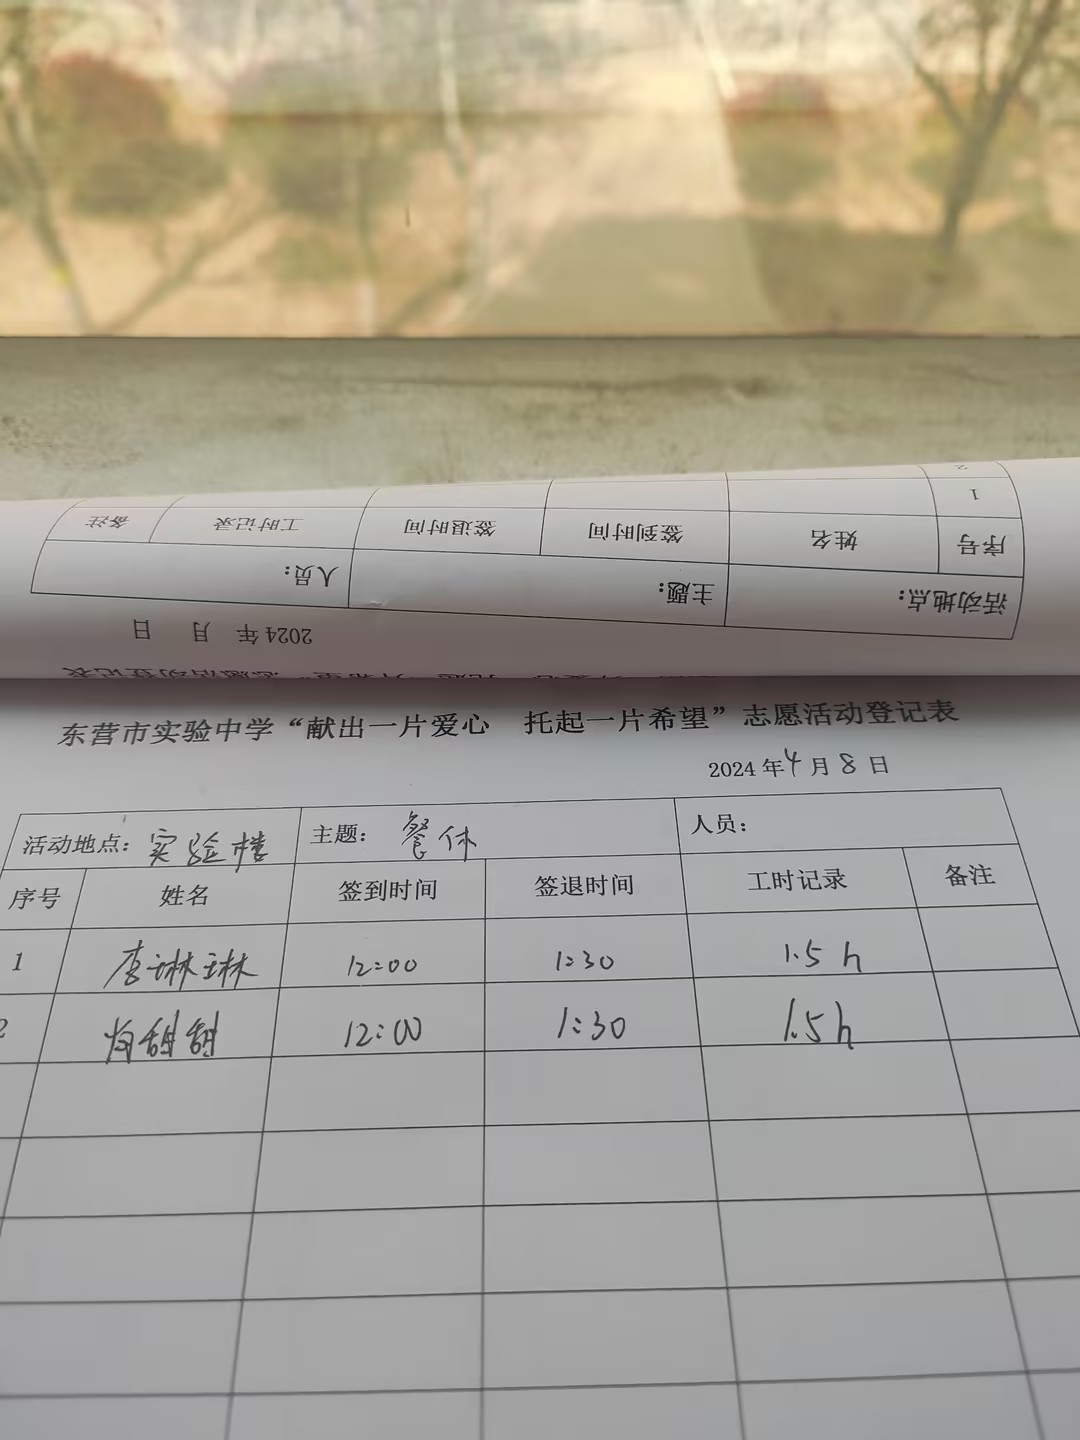 2
1
序号 姓名 签到时间 签退时间 工时记录 备注
活动地点： 主题： 人员：
2024 年 月 日
东营市实验中学“献出一片爱心 托起一片希望”志愿活动登记表
2024 年 4 月 8 日
活动地点：实验楼 主题：餐休 人员：
序号 姓名 签到时间 签退时间 工时记录 备注
1 李琳琳 12:00 1:30 1.5 h
2 甜甜 12:00 1:30 1.5 h